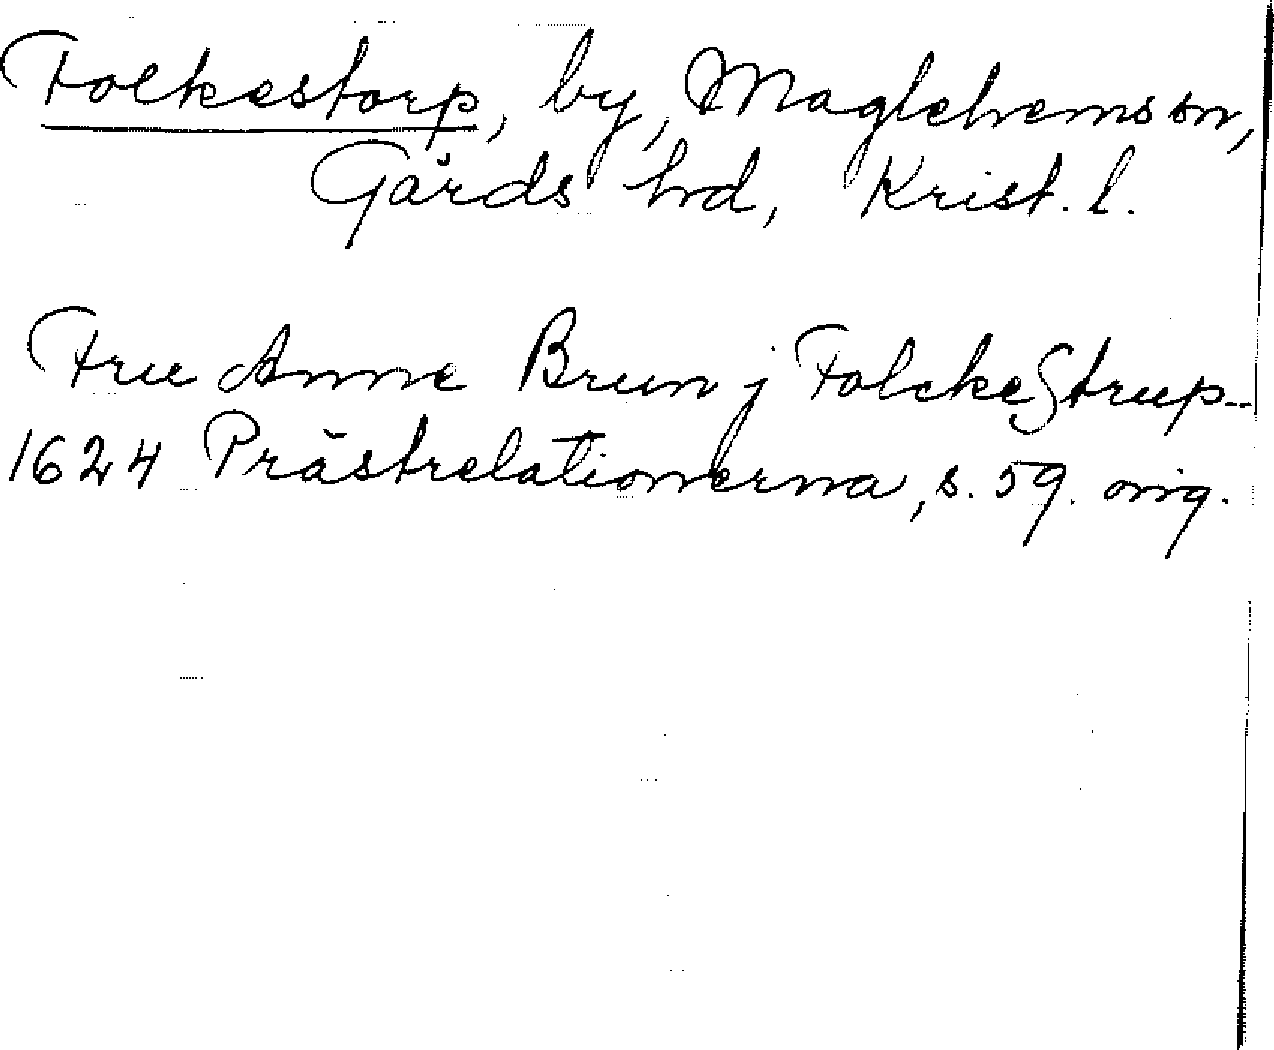 Folkestorp, by, Maglehems sn,
Gärds hd, Krist. l.
Fru Anne Brun j FolckeStrup_
1624 Prästrelationerna, s. 59. orig.